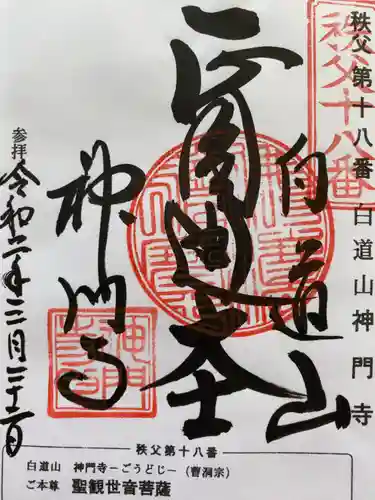 秩父十八番
秩父第十八番 白道山神門寺
白道山
正圓通大士
神門寺
神門寺
参拝 令和二年三月二十二日
秩父第十八番
白道山 神門寺ーごうどじー（曹洞宗）
ご本尊 聖観世音菩薩